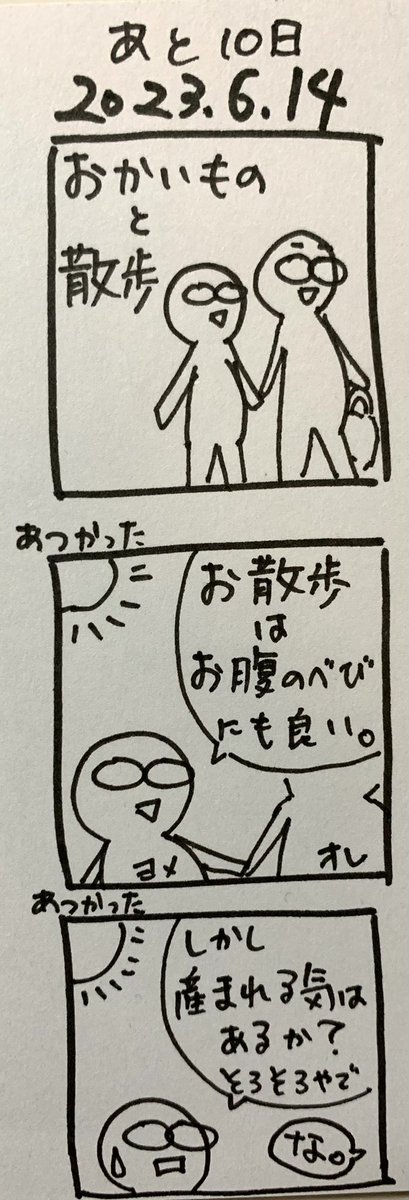 あと10日
2023.6.14
おかいもの
と
散歩
あつかった
お散歩
は
お腹のべび
にも良い。
ヨメ
オレ
あつかった
しかし
産まれる気は
あるか?
そろそろやで
な。